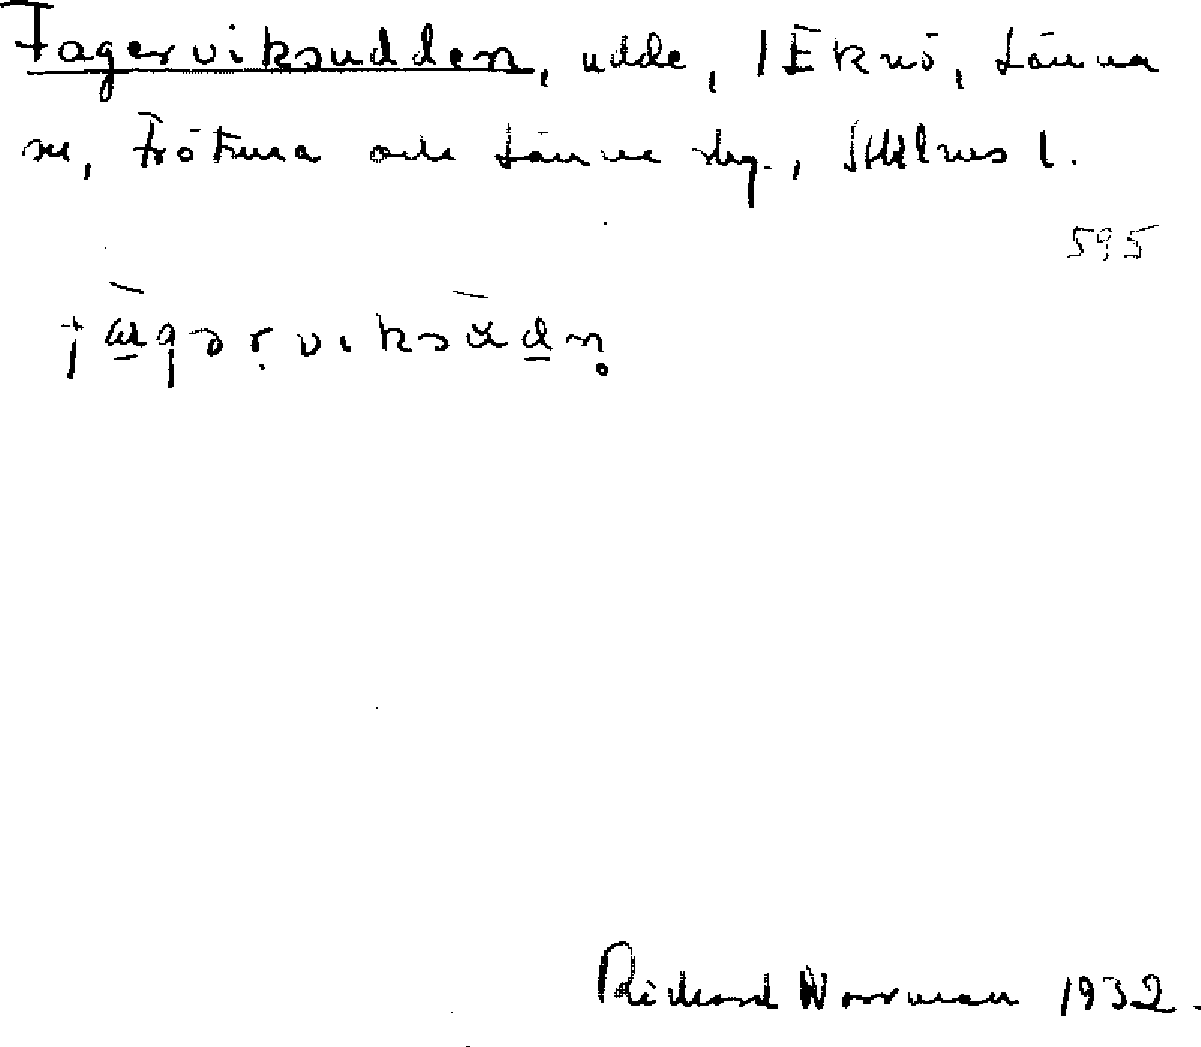 Fagerviksudden, udde, 1 Eknö, Länna
sn, Frötuna och Länna skg., Sthlms l.
595
Richard Norrman 1932.